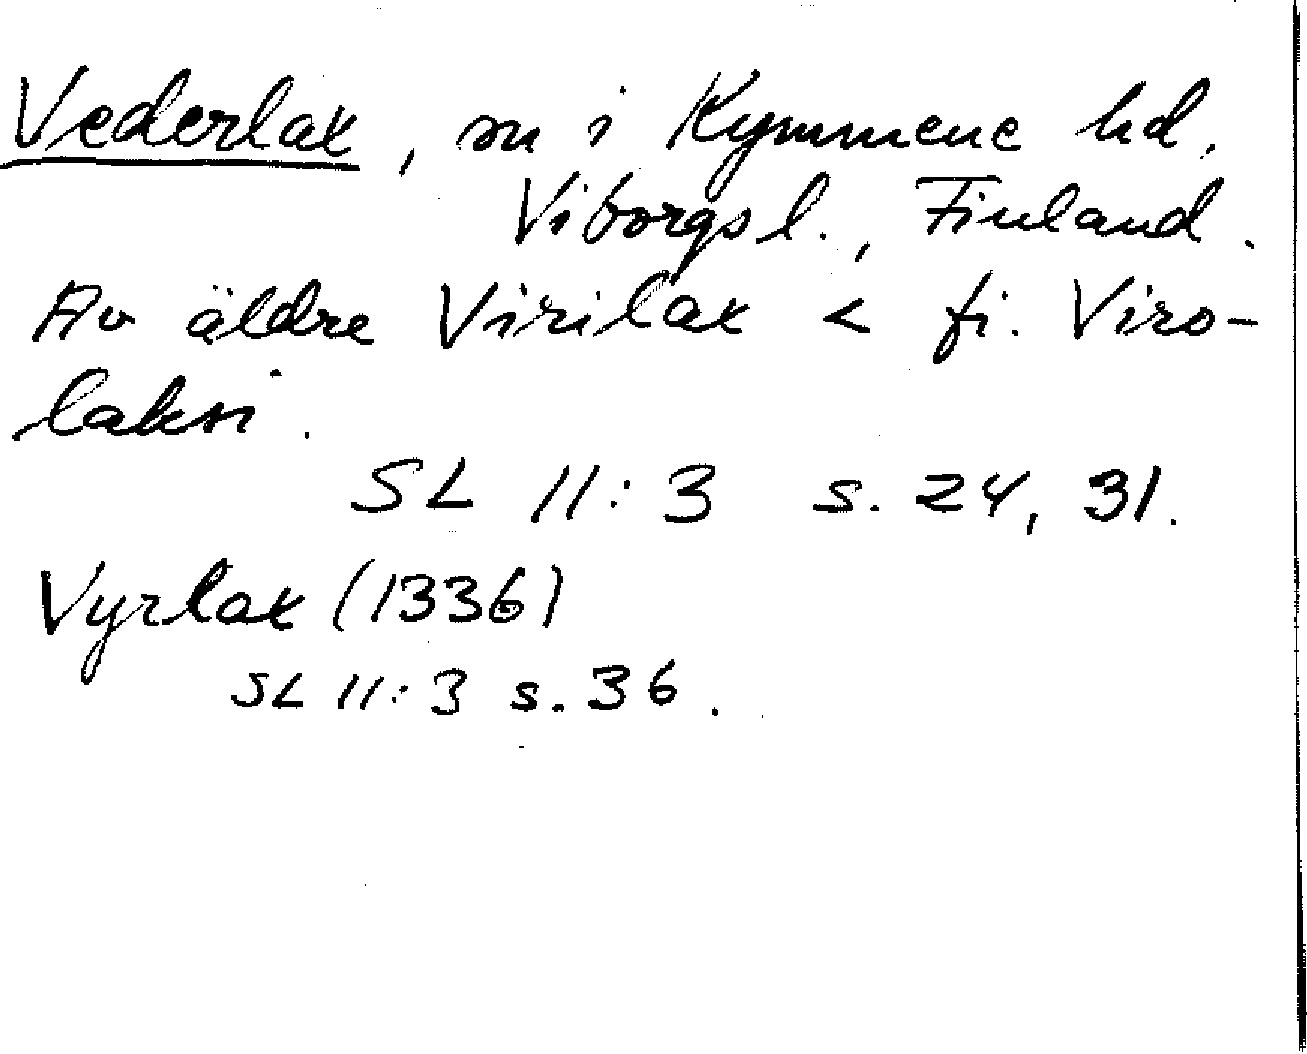 Vederlax, sn i Kymmene hd,
Viborgs l., Finland.
Av äldre Virilax < fi. Viro-
laksi.
SL 11:3 s. 24, 31.
Vyrlax (1336)
SL 11:3 s. 36.